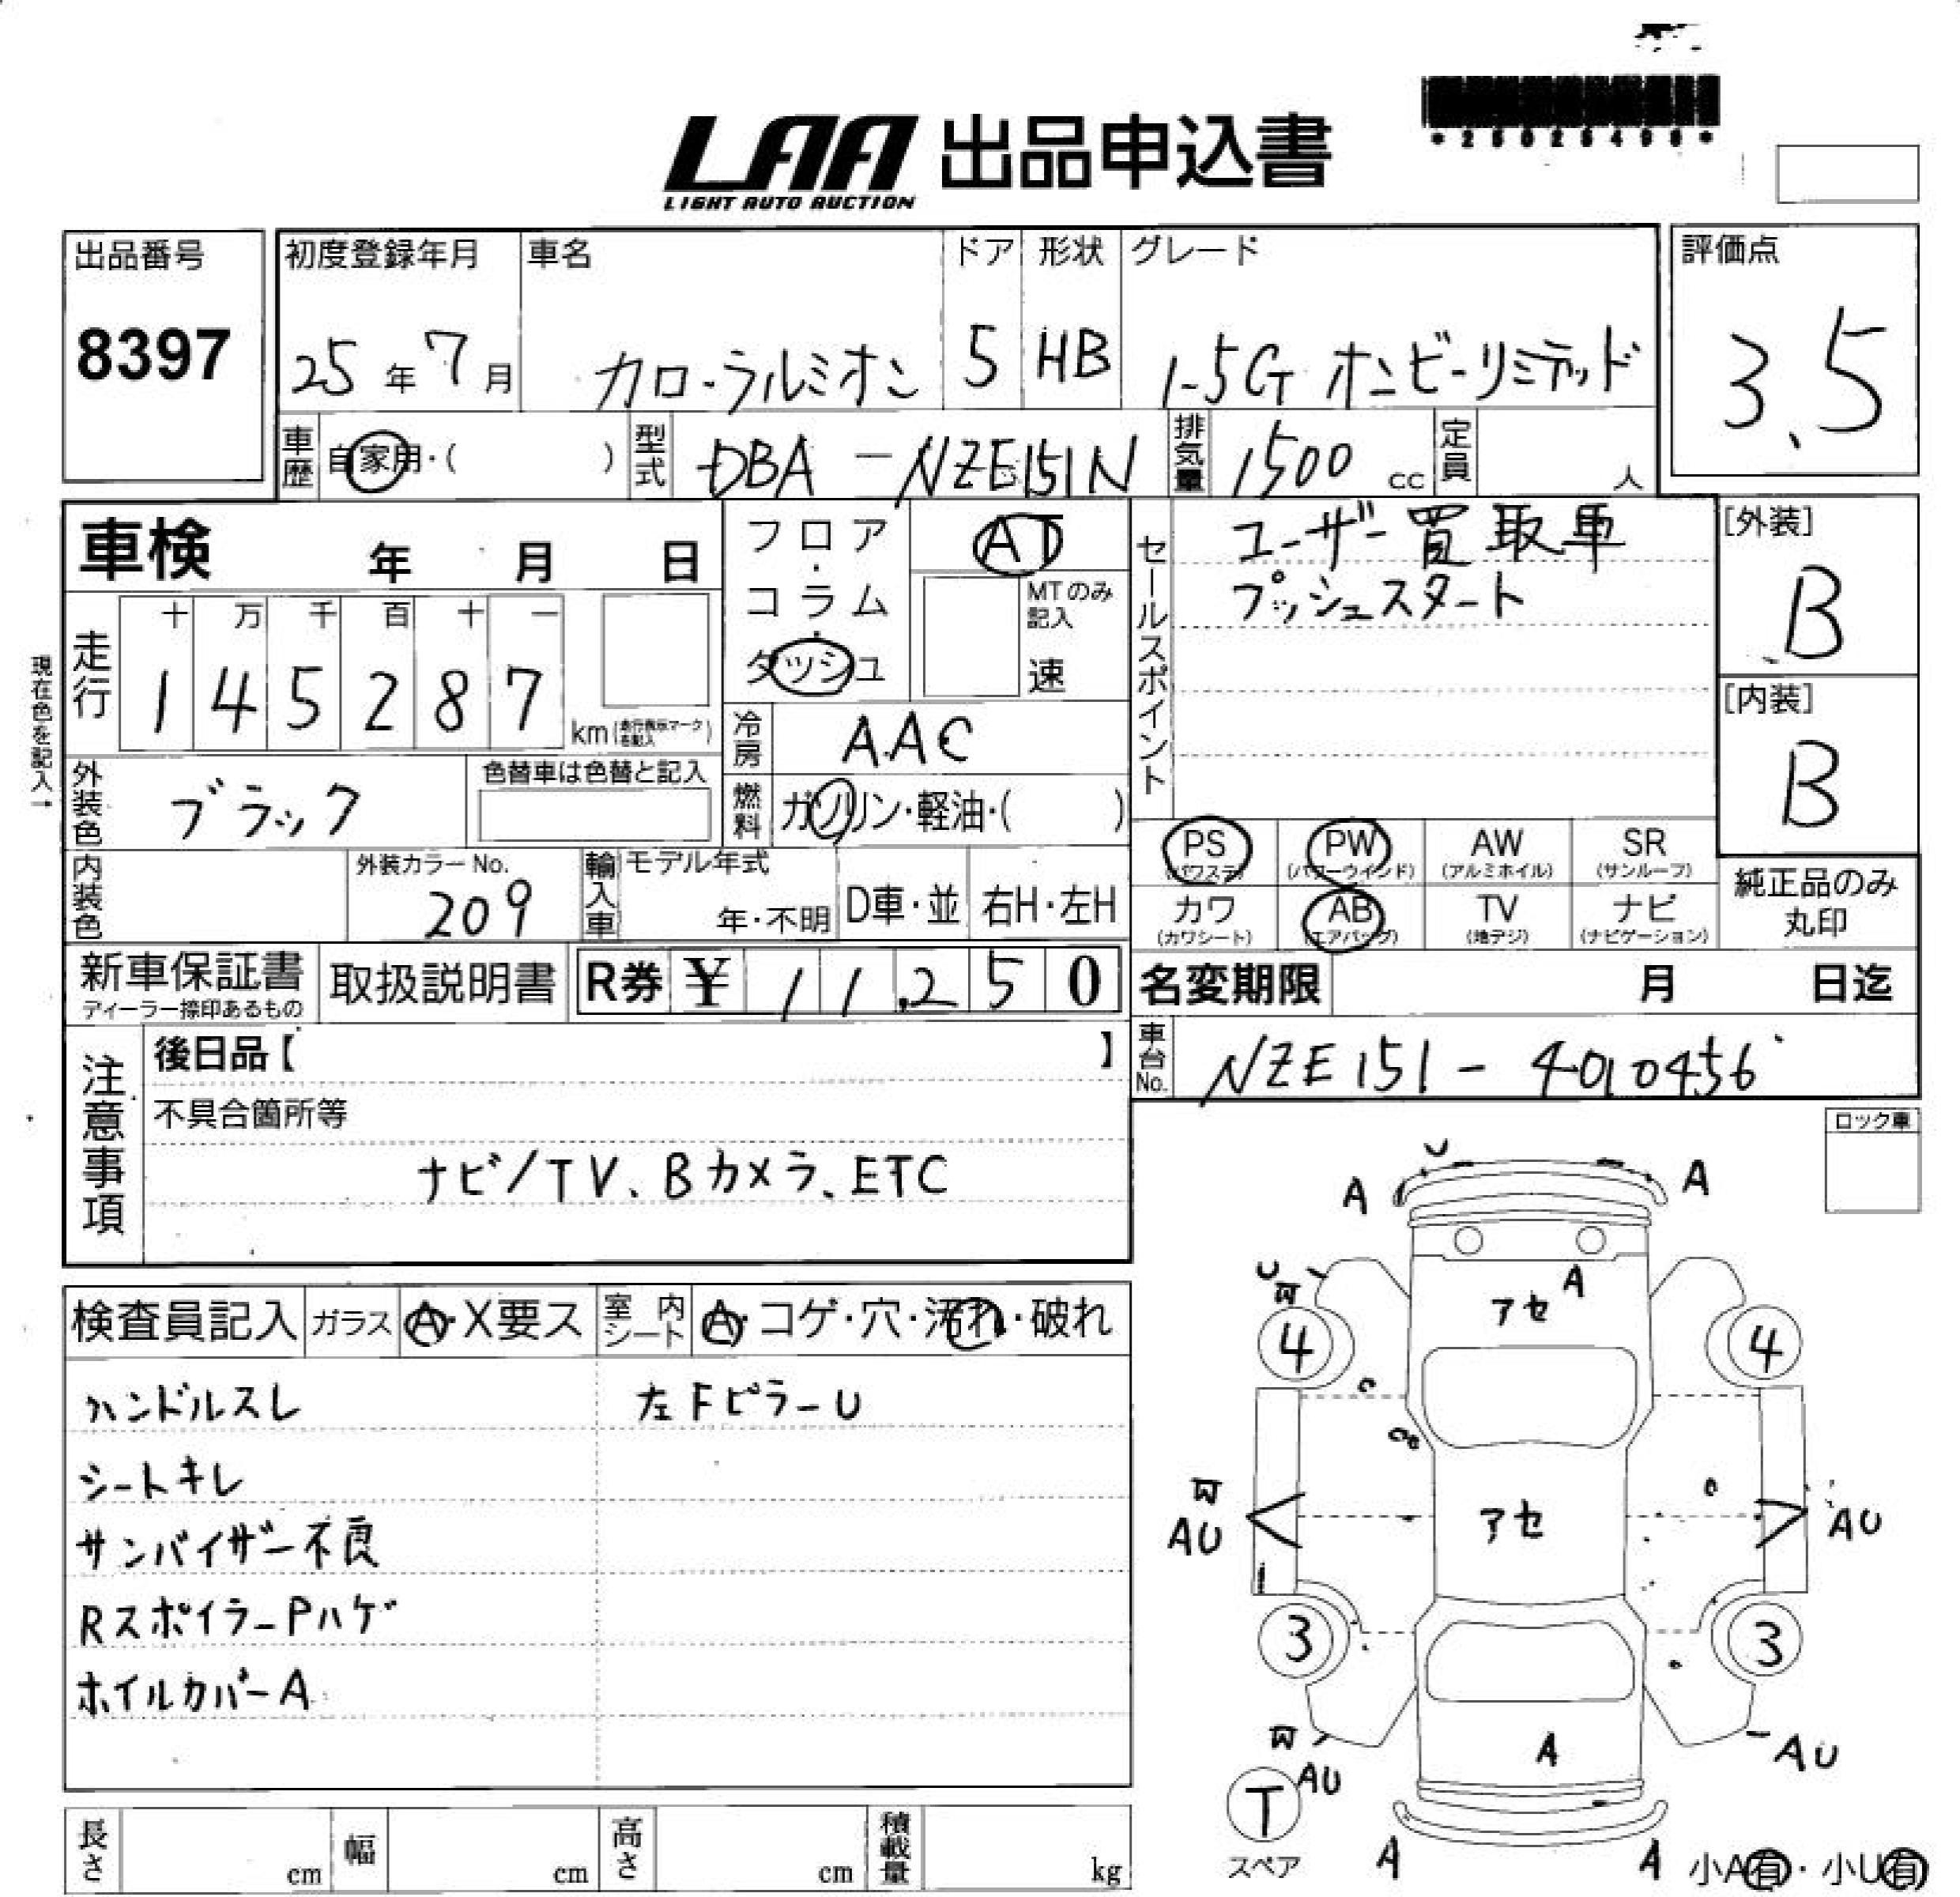 *25025498*
LAA 出品申込書
LIGHT AUTO AUCTION
出品番号
8397
初度登録年月
25年7月
車名
カローラルミオン
ドア
5
形状
HB
グレード
1-5G オンビーリミテッド
評価点
3.5
車歴 自家用・( )
型式 DBA-NZE151N
排気量 1500 cc
定員 人
車検 年 月 日
走行
十 万 千 百 十 一
1 4 5 2 8 7
km
現在色を記入→
フロア・コラム・ダッシュ
AT
MTのみ記入
速
冷房 AAC
燃料 ガソリン・軽油・( )
セールスポイント
ユーザー買取車
プッシュスタート
[外装]
B
[内装]
B
外装色 ブラック
色替車は色替と記入
内装色
外装カラーNo.
209
輸入車
モデル年式
年・不明
D車・並
右H・左H
PS (パワステ)
PW (パワーウインド)
AW (アルミホイル)
SR (サンルーフ)
カワ (カワシート)
AB (エアバッグ)
TV (地デジ)
ナビ (ナビゲーション)
純正品のみ
丸印
新車保証書
ディーラー捺印あるもの
取扱説明書
R券 ¥ 11,250
名変期限 月 日迄
車台No. NZE151-4010456
注意事項
後日品【 】
不具合箇所等
ナビ/TV、Bカメラ、ETC
ロック車
検査員記入
ガラス A・X要ス
室内シート A・コゲ・穴・汚れ・破れ
ハンドルスレ
左FピラーU
シートキレ
サンバイザー不良
RスポイラーPハゲ
ホイルカバーA
U
A
A
U
A
アセ
4
4
アセ
AU
AU
3
3
A
AU
AU
T
スペア
A
A
小A有・小U有
長さ cm
幅 cm
高さ cm
積載量 kg